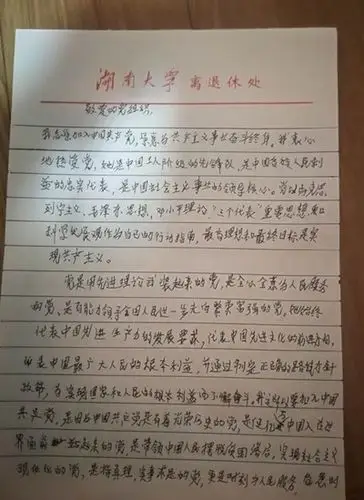 湖南大学 离退休处
敬爱的党组织:
我志愿加入中国共产党,愿意为共产主义事业奋斗终身。我衷心
地热爱党,她是中国工人阶级的先锋队,是中国各族人民利
益的忠实代表,是中国社会主义事业的领导核心。
列宁主义、毛泽东思想,邓小平理论"三个代表"重要思想和
科学发展观作为自己的行动指南,最高理想和最终目标是实
现共产主义。
党是用先进理论武装起来的党,是全心全意为人民服务
的党,是有能力领导全国人民进一步走向繁荣富强的党,她始终
代表中国先进生产力的发展要求,代表中国先进文化的前进方向,
代表中国最广大人民的根本利益,并通过制定正确的路线方针
政策,为实现国家和人民的根本利益而不懈奋斗。我之所以要加入中国
共产党,是因为中国共产党是有着光荣历史的党,是
起来的党,是带领中国人民摆脱贫困落后,实现社会主义
现代化的党,是将真理,